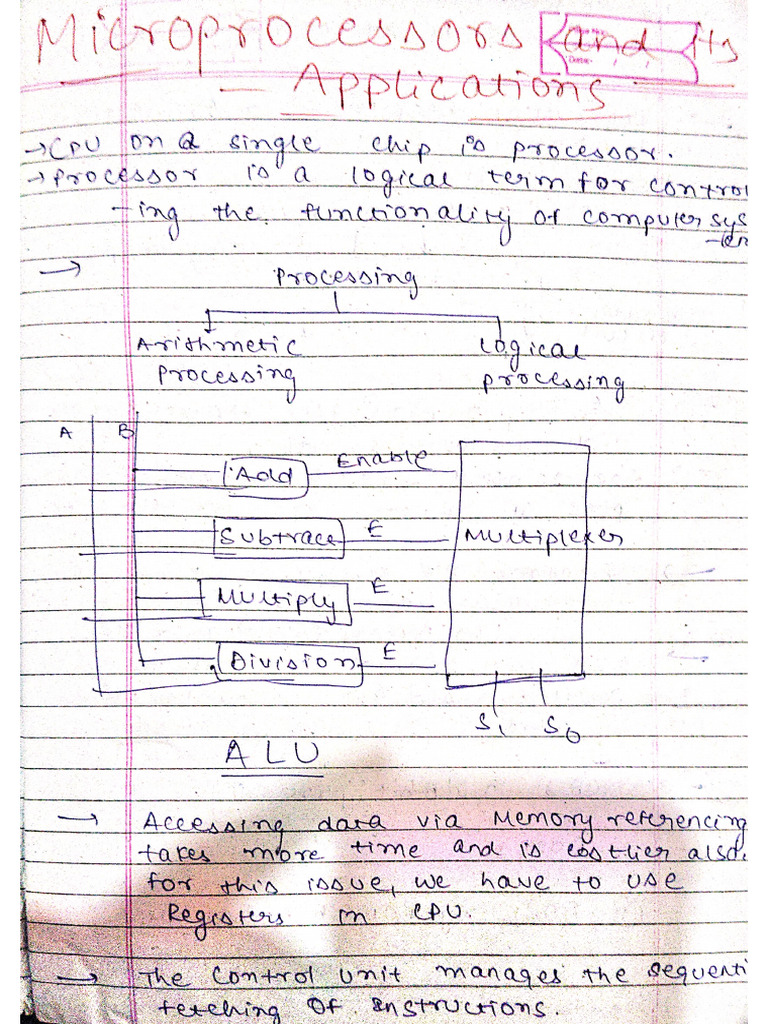 Microprocessors and its
— Applications
→ CPU on a single chip is processor.
→ Processor is a logical term for control
-ing the functionality of computer sys
→
Processing
Arithmetic Logical
Processing processing
A B
Add Enable
Subtrace E Multiplexer
Multiply E
Division E
S1 S0
ALU
→ Accessing data via Memory referencing
takes more time and is costlier also.
for this issue, we have to use
Registers in CPU.
→ The control unit manages the sequenti
fetching of instructions.